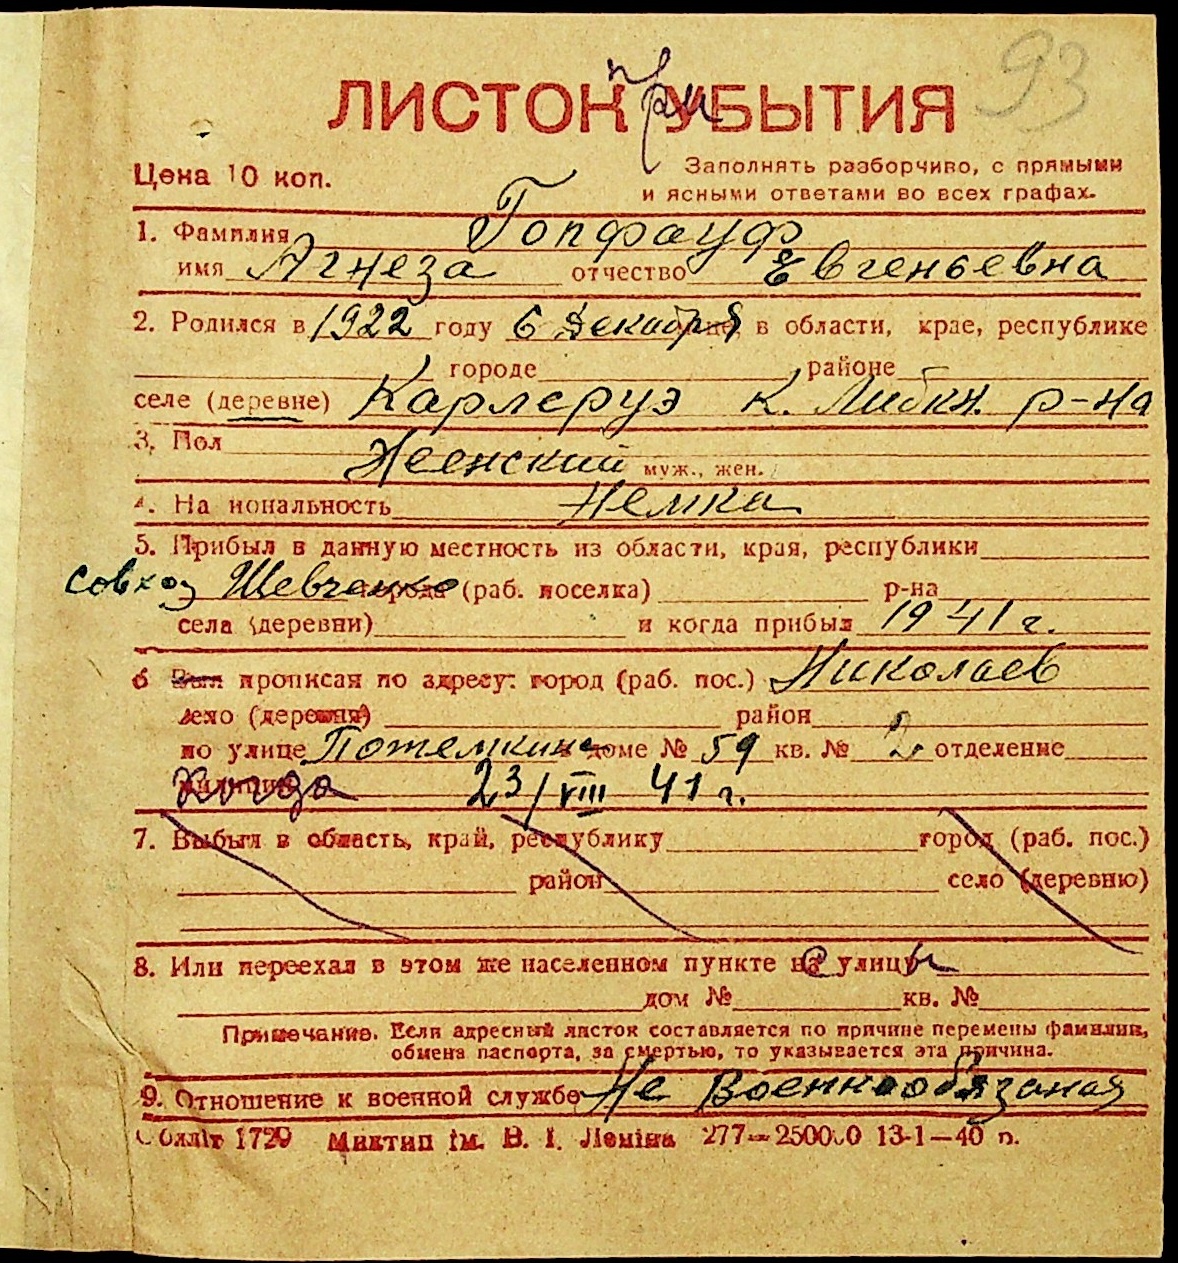 93
ЛИСТОК при УБЫТИЯ
Цена 10 коп.
Заполнять разборчиво, с прямыми
и ясными ответами во всех графах.
1. Фамилия Гопфауф
имя Агнеза отчество Евгеньевна
2. Родился в 1922 году 6 декабря в области, крае, республике
городе районе
селе (деревне) Карлсруэ К. Либкн. р-на
3. Пол Женский муж., жен.
4. На иональность Немка
5. Прибыл в данную местность из области, края, республики
совхоз Шевченко города (раб. поселка) р-на
села (деревни) и когда прибыл 1941 г.
6 Был прописан по адресу: город (раб. пос.) Николаев
село (деревня) район
по улице Потемкин доме № 59 кв. № 2 отделение
милиции Когда 23/VIII 41 г.
7. Выбыл в область, край, республику город (раб. пос.)
район село (деревню)
8. Или переехал в этом же населенном пункте на с улицу ы
дом № кв. №
Примечание. Если адресный листок составляется по причине перемены фамилии,
обмена паспорта, за смертью, то указывается эта причина.
9. Отношение к военной службе Не военнообязаная
Обллiт 1729 Миктип iм. В. I. Ленiна 277—250000 13-1—40 р.